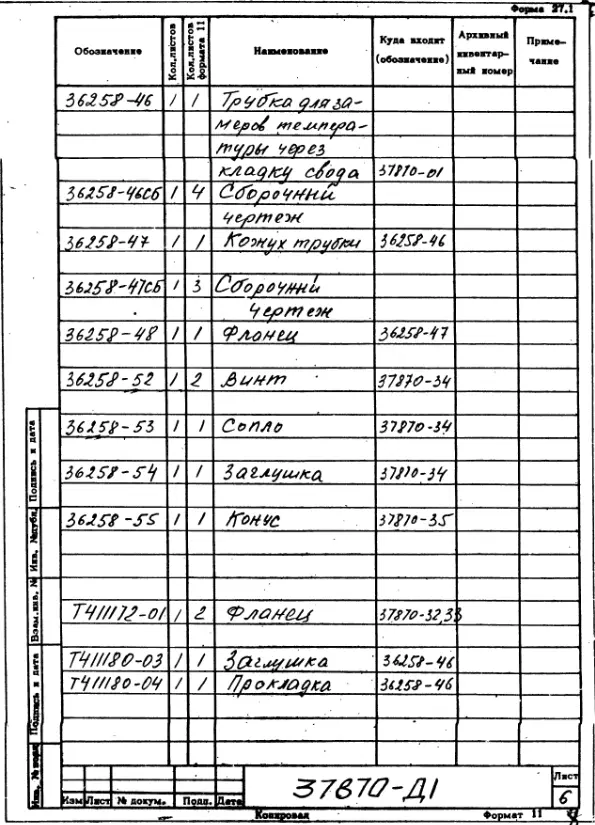 Форма 27.1
Обозначение Кол.листов Кол.листов формата 11 Наименование Куда входит (обозначение) Архивный инвентарный номер Примечание
36258-46 1 1 Трубка для за-
меров темпера-
туры через
кладку свода 37870-01
36258-46СБ 1 4 Сборочний
чертеж
36258-47 1 1 Кожух трубки 36258-46
36258-47СБ 1 3 Сборочний
Чертеж
36258-48 1 1 Фланец 36258-47
36258-52 1 2 Винт 37870-34
36258-53 1 1 Сопло 37870-34
36258-54 1 1 Заглушка 37870-34
36258-55 1 1 Конус 37870-35
Т411172-01 1 2 Фланец 37870-32,33
Т411180-03 1 1 Заглушка 36258-46
Т411180-04 1 1 Прокладка 36258-46
Подпись и дата
Взам.инв. №
Подпись и дата
37870-Д1
Лист
6
Изм Лист № докум. Подп. Дата
Копировал Формат 11